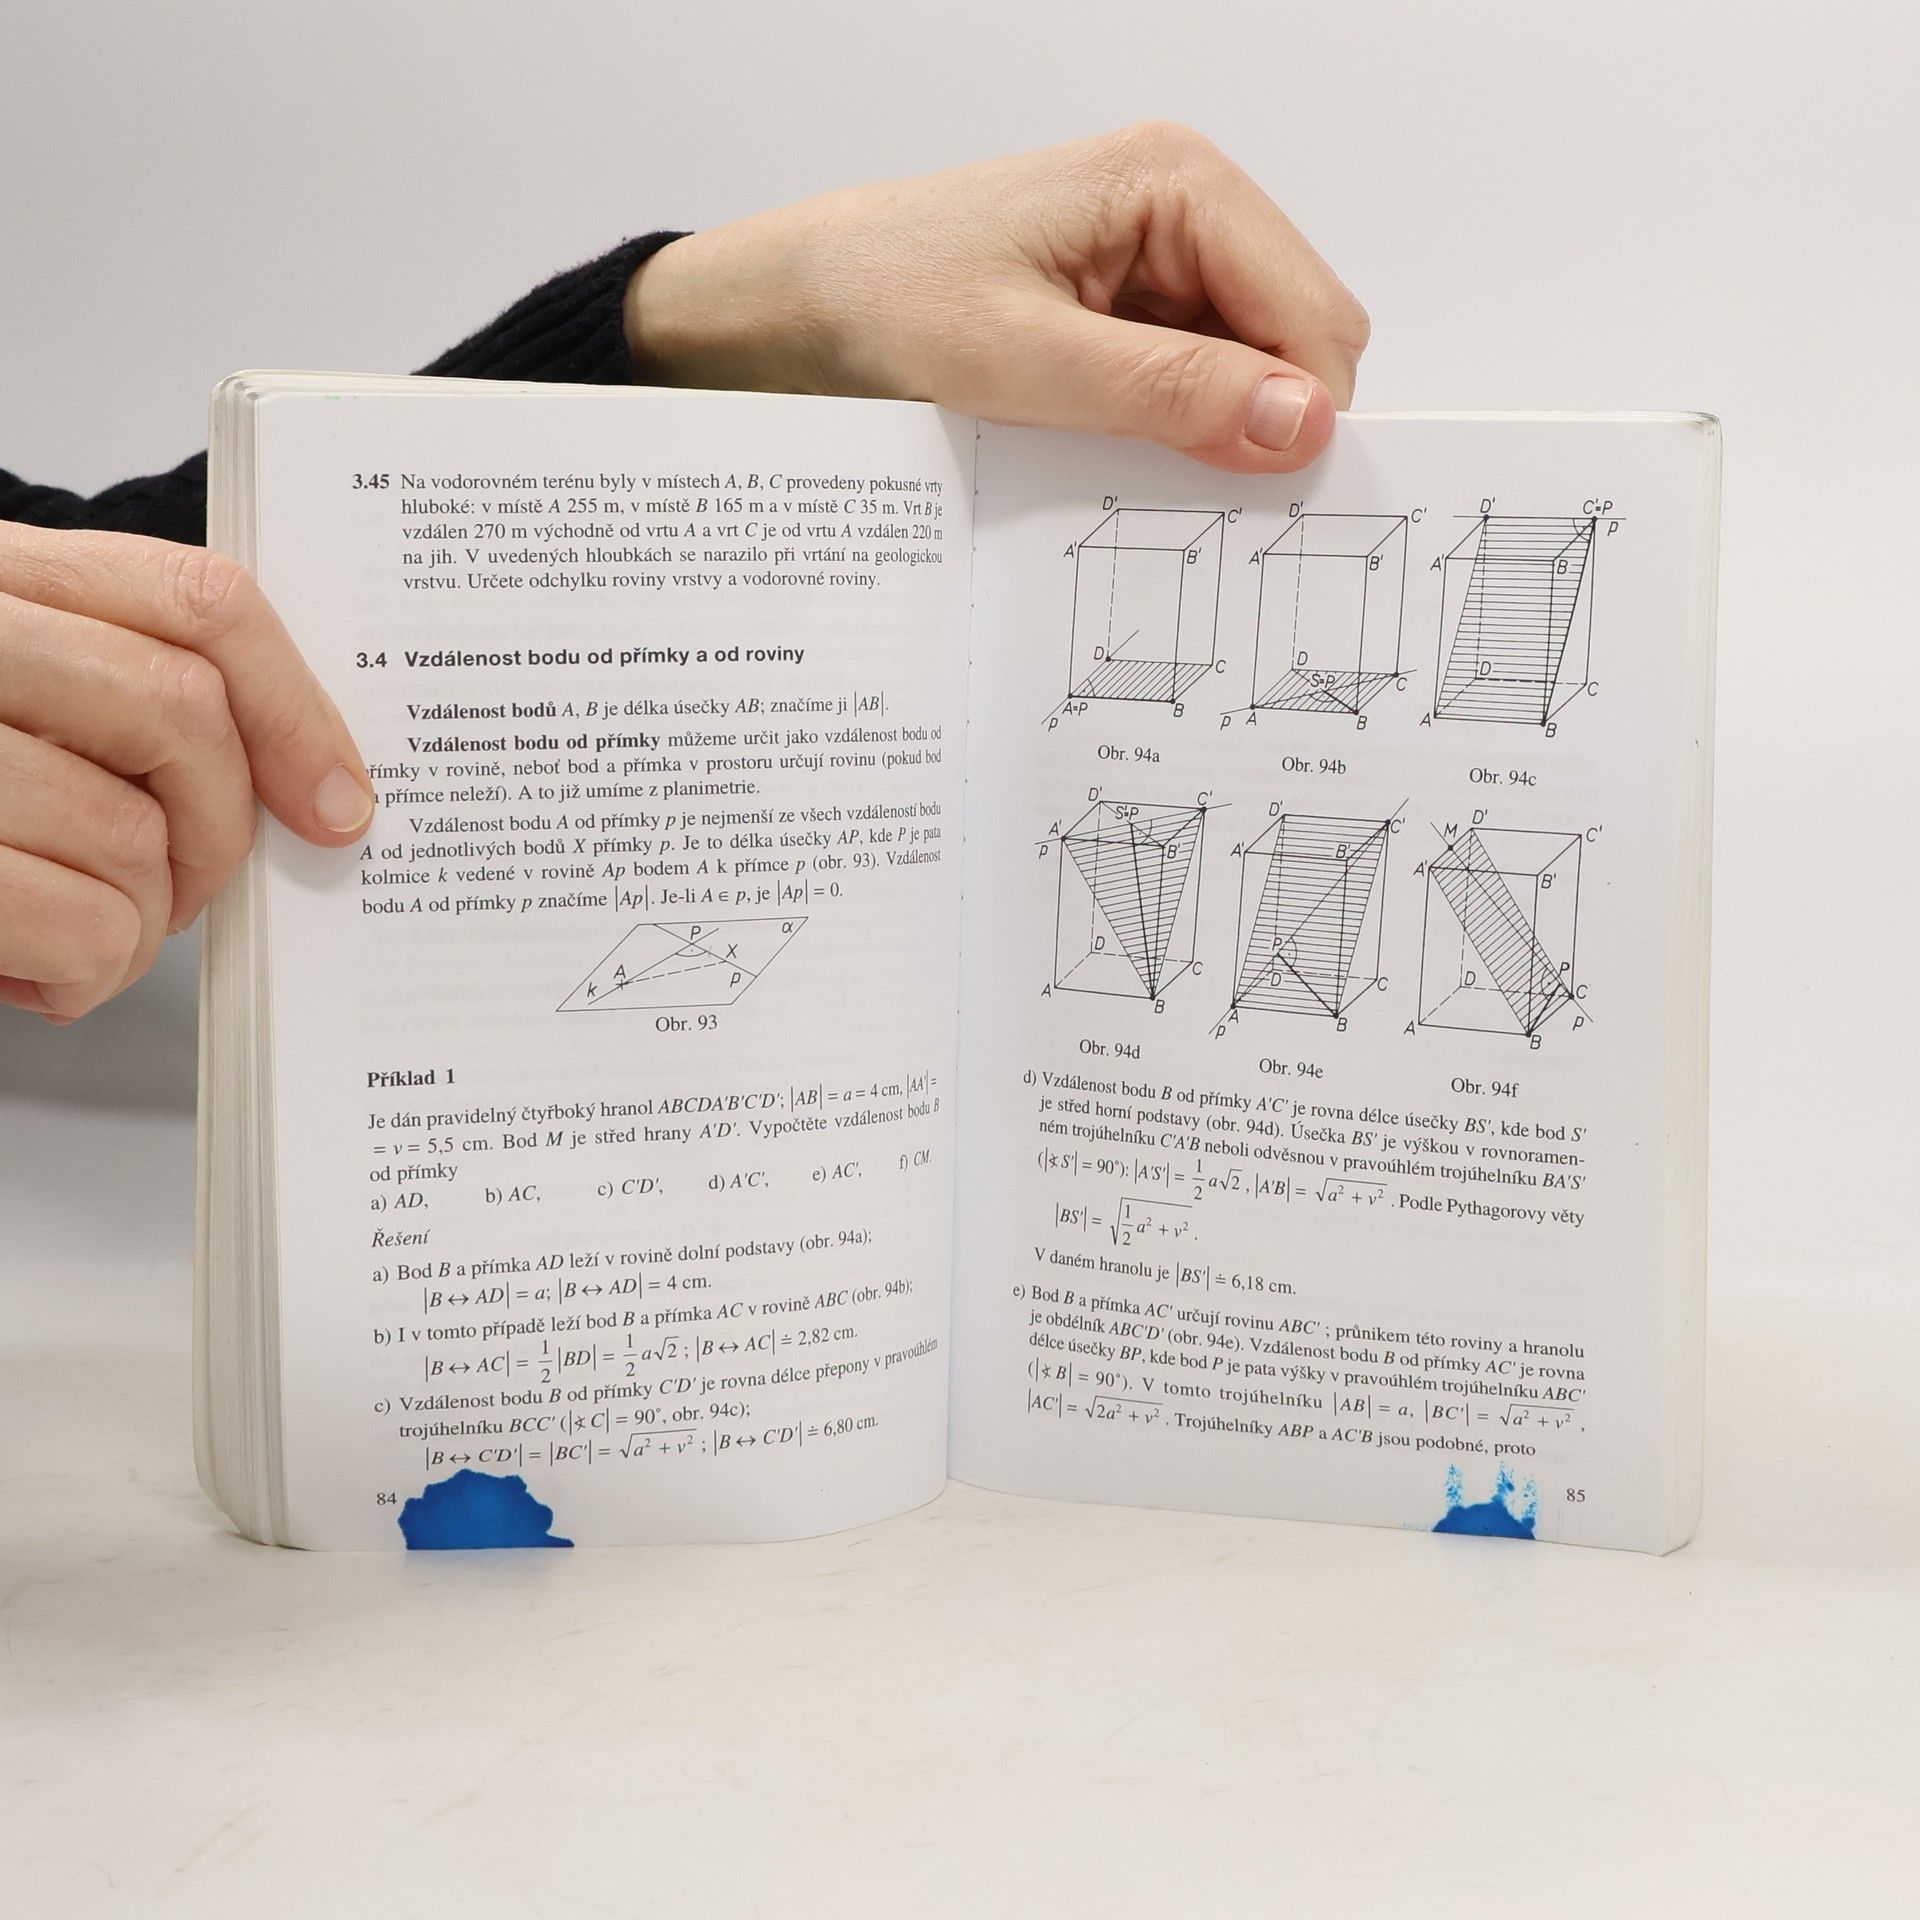 3.45 Na vodorovném terénu byly v místech A, B, C provedeny pokusné vrty
hluboké: v místě A 255 m, v místě B 165 m a v místě C 35 m. Vrt B je
vzdálen 270 m východně od vrtu A a vrt C je od vrtu A vzdálen 220 m
na jih. V uvedených hloubkách se narazilo při vrtání na geologickou
vrstvu. Určete odchylku roviny vrstvy a vodorovné roviny.
3.4 Vzdálenost bodu od přímky a od roviny
Vzdálenost bodů A, B je délka úsečky AB; značíme ji |AB|.
Vzdálenost bodu od přímky můžeme určit jako vzdálenost bodu od
římky v rovině, neboť bod a přímka v prostoru určují rovinu (pokud bod
přímce neleží). A to již umíme z planimetrie.
Vzdálenost bodu A od přímky p je nejmenší ze všech vzdáleností bodu
A od jednotlivých bodů X přímky p. Je to délka úsečky AP, kde P je pata
kolmice k vedené v rovině Ap bodem A k přímce p (obr. 93). Vzdálenost
bodu A od přímky p značíme |Ap|. Je-li A ∈ p, je |Ap| = 0.
P α
X
A p
k
Obr. 93
Příklad 1
Je dán pravidelný čtyřboký hranol ABCDA'B'C'D'; |AB| = a = 4 cm, |AA'| =
= v = 5,5 cm. Bod M je střed hrany A'D'. Vypočtěte vzdálenost bodu B
od přímky
a) AD, b) AC, c) C'D', d) A'C', e) AC', f) CM.
Řešení
a) Bod B a přímka AD leží v rovině dolní podstavy (obr. 94a);
|B ↔ AD| = a; |B ↔ AD| = 4 cm.
b) I v tomto případě leží bod B a přímka AC v rovině ABC (obr. 94b);
|B ↔ AC| = 1/2 |BD| = 1/2 a√2 ; |B ↔ AC| ≐ 2,82 cm.
c) Vzdálenost bodu B od přímky C'D' je rovna délce přepony v pravoúhlém
trojúhelníku BCC' (|∢ C| = 90°, obr. 94c);
|B ↔ C'D'| = |BC'| = √(a² + v²) ; |B ↔ C'D'| ≐ 6,80 cm.
84
D' C' A' B' D C A=P B p
Obr. 94a
D' C' A' B' D S=P C p A B
Obr. 94b
D' C'=P p A' B' D C A B
Obr. 94c
D' S'=P C' A' p B' D C A B
Obr. 94d
D' C' A' B' P D C A B p
Obr. 94e
M D' C' A' B' D P C A p B
Obr. 94f
d) Vzdálenost bodu B od přímky A'C' je rovna délce úsečky BS', kde bod S'
je střed horní podstavy (obr. 94d). Úsečka BS' je výškou v rovnoramen-
ném trojúhelníku C'A'B neboli odvěsnou v pravoúhlém trojúhelníku BA'S'
(|∢ S'| = 90°): |A'S'| = 1/2 a√2 , |A'B| = √(a² + v²) . Podle Pythagorovy věty
|BS'| = √(1/2 a² + v²) .
V daném hranolu je |BS'| ≐ 6,18 cm.
e) Bod B a přímka AC' určují rovinu ABC' ; průnikem této roviny a hranolu
je obdélník ABC'D' (obr. 94e). Vzdálenost bodu B od přímky AC' je rovna
délce úsečky BP, kde bod P je pata výšky v pravoúhlém trojúhelníku ABC'
(|∢ B| = 90°). V tomto trojúhelníku |AB| = a, |BC'| = √(a² + v²) ,
|AC'| = √(2a² + v²) . Trojúhelníky ABP a AC'B jsou podobné, proto
85